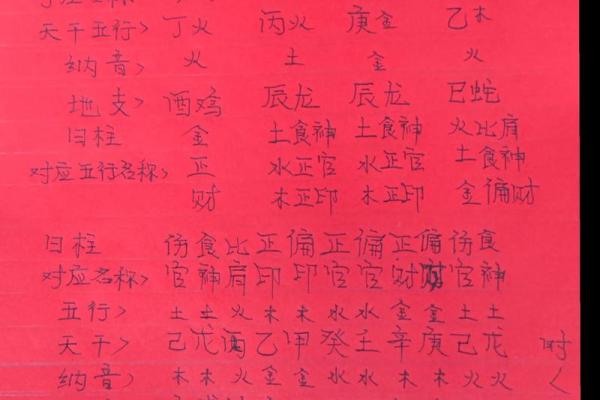 天干五行> 丁火 丙火 庚金 乙木
纳音> 火 土 金 火
地支> 酉鸡 辰龙 辰龙 巳蛇
日柱 金 土食神 土食神 火比肩
对应五行名称> 正 水正官 水正官 土食神
财 木正印 木正印 金偏财
日柱 伤食比正偏正偏正偏伤食
对应名称> 官神肩印印官官财财官神
五行> 土土火木木水水金金土土
天干> 己戊丙乙甲癸壬辛庚己戊 时
纳音> 木木火金金水水木木火火 <